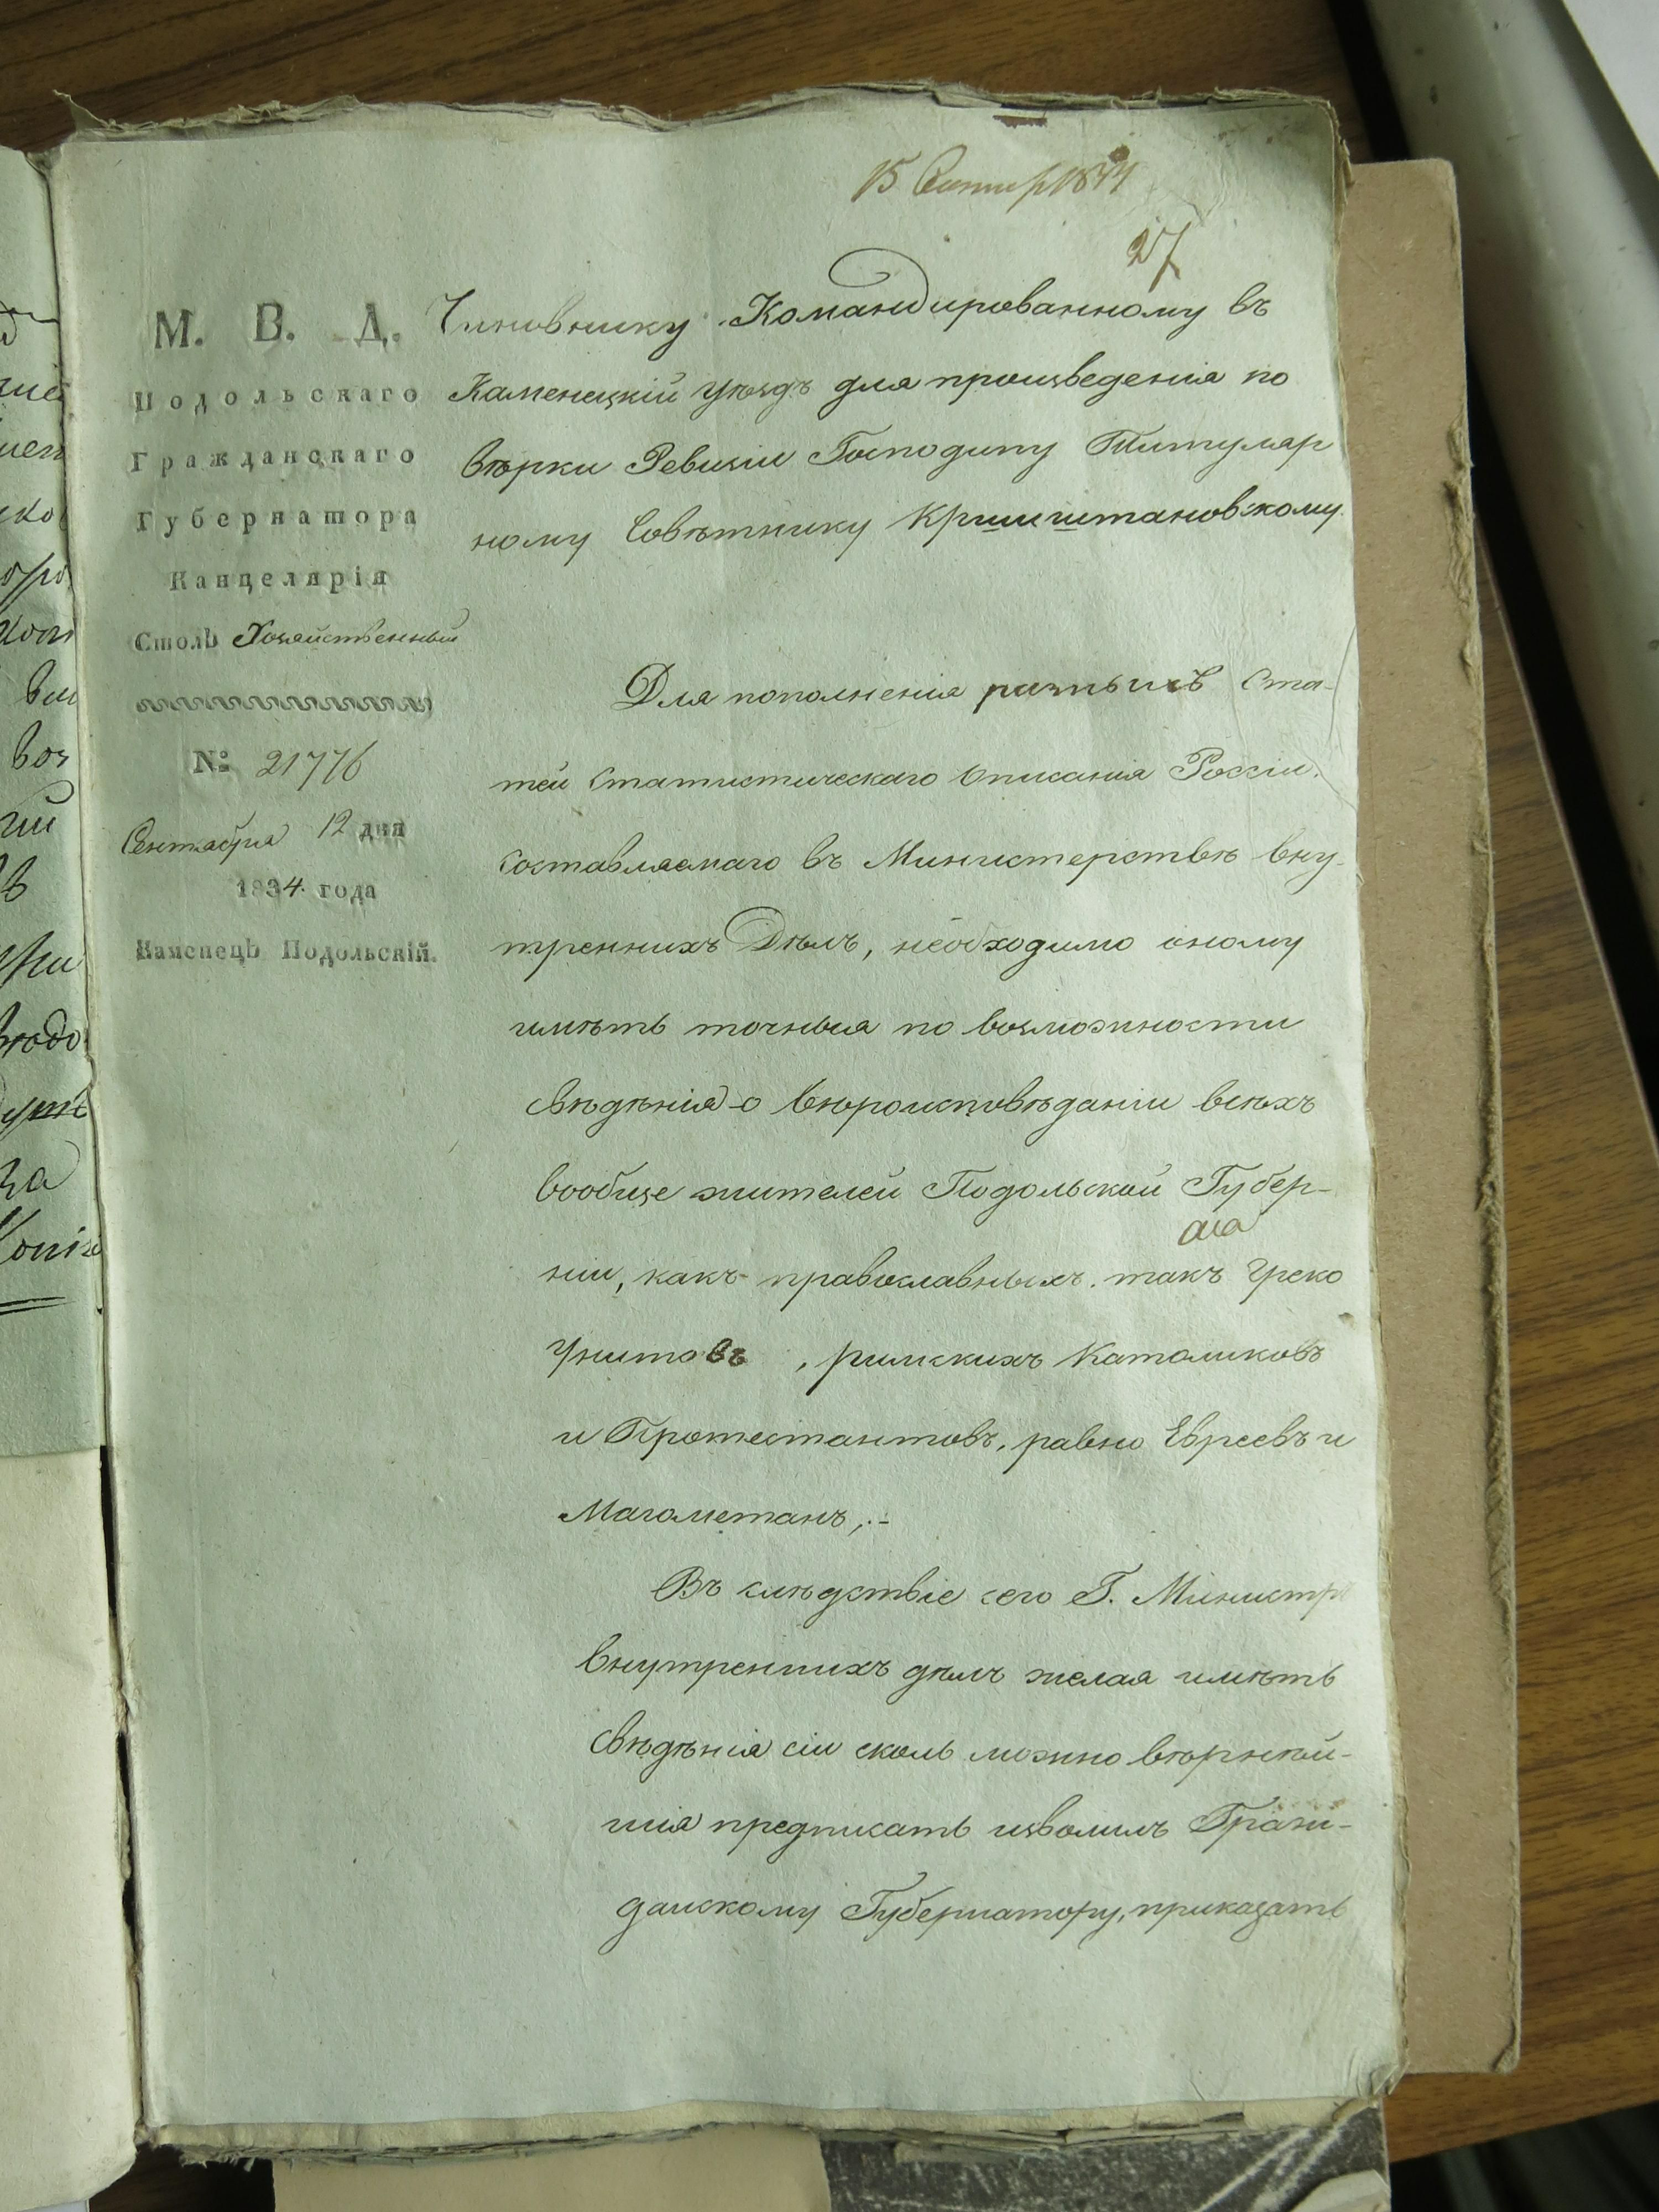 15 Сентяб 1834
27
М. В. Д.
Подольскаго
Гражданскаго
Губернатора
Канцелярія
Столъ Хозяйственный
№ 21776
Сентября 12 дня
1834 года
Каменецъ Подольскій.
Чиновнику Командированному въ
Каменецкій уѣздъ для произведенія по
вѣрки Ревизіи Господину Титуляр
ному Совѣтнику Кришштановскому
Для пополненія разныхъ Ста-
тей Статистическаго Описанія Россіи,
составляемаго въ Министерствѣ Вну-
треннихъ Дѣлъ, необходимо оному
имѣть точныя по возможности
свѣдѣнія о Вѣроисповѣданіи всѣхъ
вообще жителей Подольской Губер-
ніи, какъ православныхъ, такъ Греко
Унитовъ, римскихъ Католиковъ
и Протестантовъ, равно Евреевъ и
Магометанъ,.-
Въ слѣдствіе сего Г. Министръ
Внутреннихъ дѣлъ желая имѣть
свѣдѣнія сіи сколь можно вѣрнѣй-
шія предписать изволилъ Граж-
данскому Губернатору, приказать